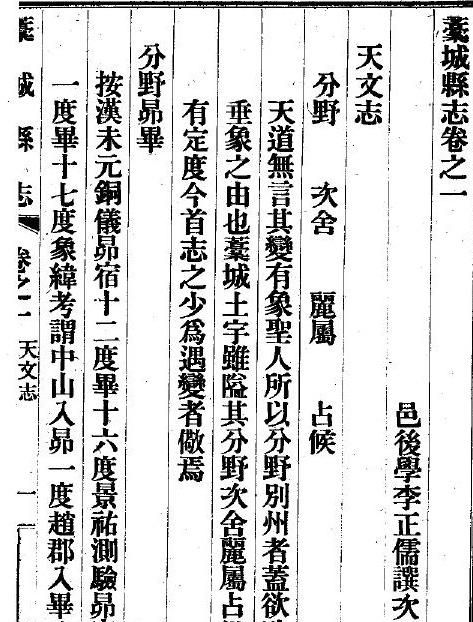 藁城縣志卷之一
邑後學李正儒譔次
天文志
分野 次舍 麗屬 占候
天道無言其變有象聖人所以分野別州者蓋欲
垂象之由也藁城土宇雖隘其分野次舍麗屬占
有定度今首志之少爲遇變者儆焉
分野昴畢
按漢末元銅儀昴宿十二度畢十六度景祐測驗昴
一度畢十七度象緯考謂中山入昴一度趙郡入畢
藁城縣志 卷之一 天文志 一